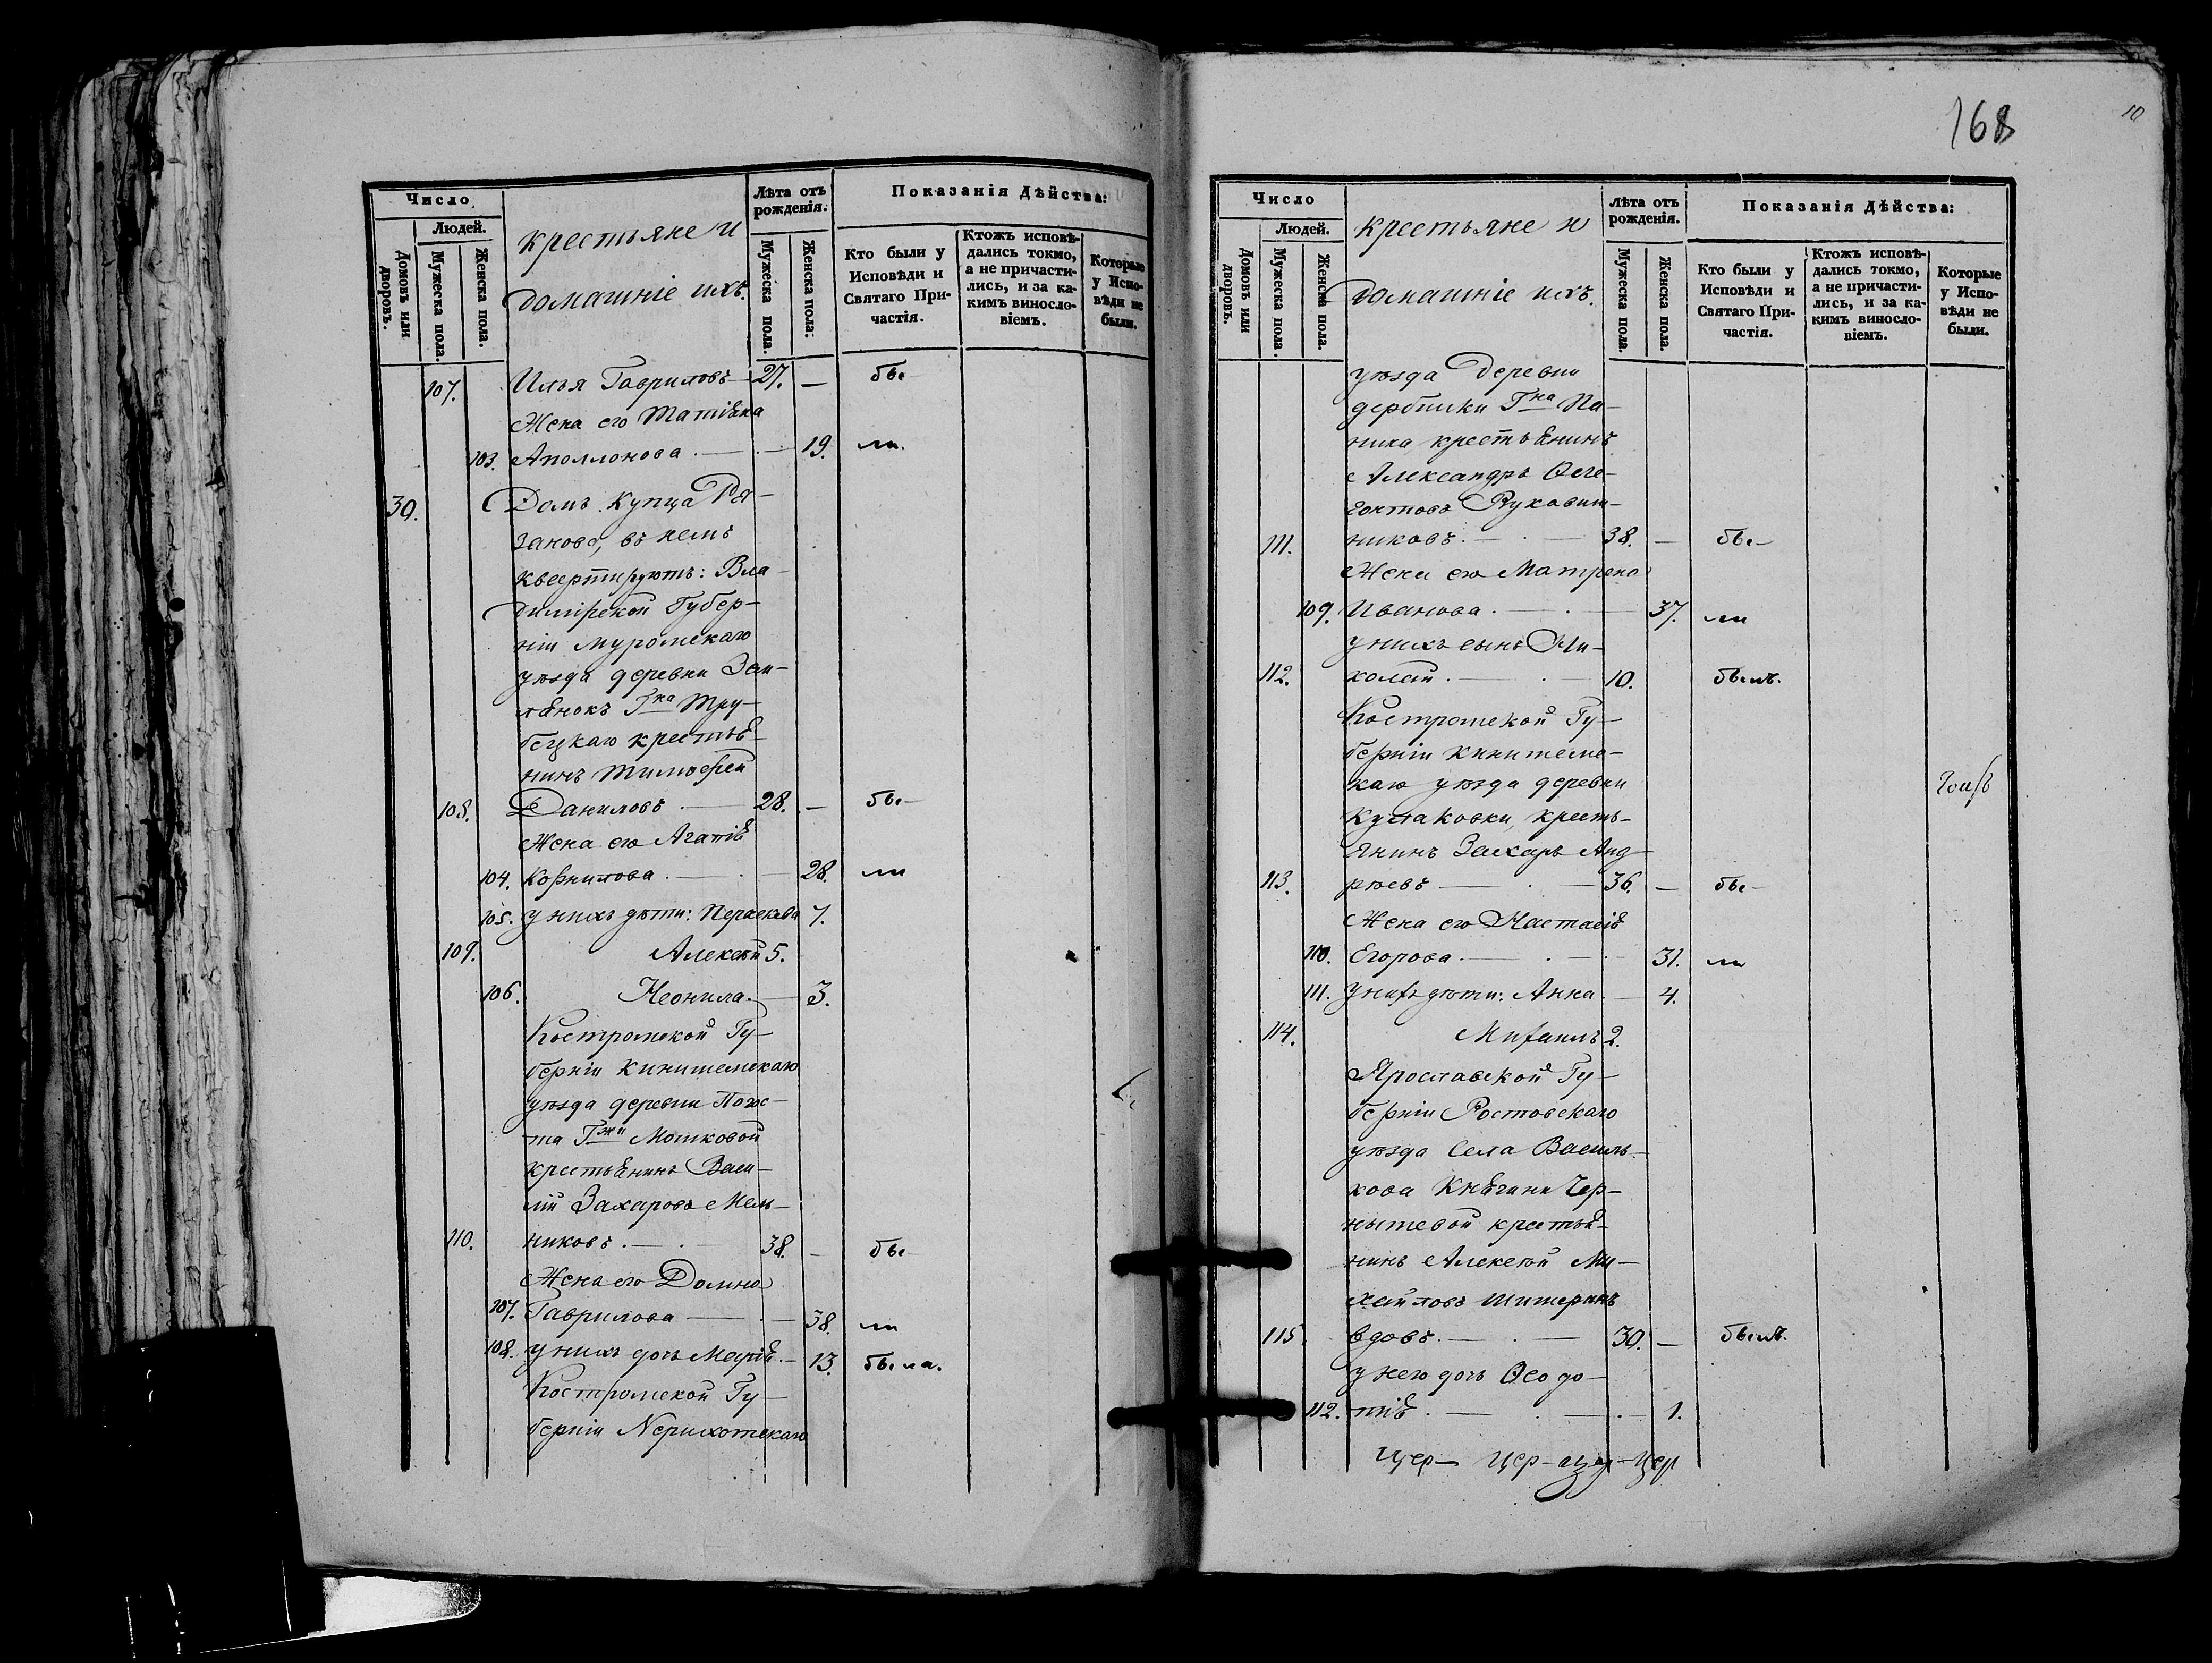 Число
Людей.
Домовъ или дворовъ.
Мужеска пола.
Женска пола.
крестьяне и
домашніе ихъ.
Лѣта отъ рожденія.
Мужеска пола.
Женска пола:
Показанія Дѣйства:
Кто были у Исповѣди и Святаго Причастія.
Ктожъ исповѣдались токмо, а не причастились, и за какимъ винословіемъ.
Которые у Исповѣди не были.
107. Илья Гавриловъ — 27. — бы-
Жена его Татіѣна
103. Аполлонова — 19. ли.
30. Домъ купца Ря-
занова, въ немъ
квартируютъ: Вла-
димірской Губер-
ніи Муромскаго
уѣзда деревни Зем-
лѣнокъ Гна Тру-
бецкаго крестьѣ-
нинъ Тимофей
108. Даниловъ — 28. — бы-
Жена его Агапіѣ
104. Корнилова — 28. ли
105. у нихъ дѣти: Пераскева 7.
109. Алексѣй 5.
106. Неонила — 3.
Костромской Гу-
берніи Кинишемскаго
уѣзда деревни Погос-
та Гжи Мошковой
крестьѣнинъ Васи-
лій Захаровъ Мель-
110. никовъ — 38. — бы-
Жена его Домна
107. Гаврилова — 38. ли
108. у нихъ дочь Маріѣ — 13. была.
Костромской Гу-
берніи Нерихотскаго
168
10
Число
Людей.
Домовъ или дворовъ.
Мужеска пола.
Женска пола.
крестьяне и
домашніе ихъ.
Лѣта отъ рожденія.
Мужеска пола.
Женска пола.
Показанія Дѣйства:
Кто были у Исповѣди и Святаго Причастія.
Ктожъ исповѣдались токмо, а не причастились, и за какимъ винословіемъ.
Которые у Исповѣди не были.
уѣзда деревни
Гна Па-
ника крестьѣнинъ
Александръ Ѳеге-
Рукавиш-
111. никовъ — 38. — бы-
Жена его Матрена
109. Иванова — 37. ли
у нихъ сынъ Ни-
112. колай — 10. былъ.
Костромской Гу-
берніи Кинишемс-
каго уѣзда деревни
Кулаковки, кресть-
янинъ Захаръ Анд-
113. рѣевъ — 36. — бы-
Жена его Настасіѣ
110. Егорова — 31. ли
111. у нихъ дѣти: Анна — 4.
114. Михаилъ 2.
Ярославской Гу-
берніи Ростовскаго
уѣзда Села Василь-
кова Кнѣгини Чер-
нышевой крестьѣ-
нинъ Алексѣй Ми-
хайловъ Шитеринъ
115. вдовъ — 30. — былъ.
у него дочь Ѳеодо-
112. тіѣ — 1.